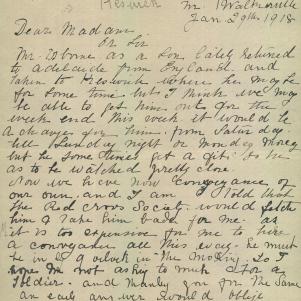 Keswick
nr Walkerville
Jan 29th 1918
Dear Madam
Or Sir
Mr Osborne as a son lately returned
to adelaide from England and
taken to Keswick where he may be
for some time but I think we may
be able to get him out for the
week end this week it would be
a change for him from Saturday
till Sunday night or Monday Morg
but he some times get a fit so he
as to be watched pretty close
Now we have now conveyance of
our own and I am told that
the Red Cross Society would fetch
him & take him back for me as
it is too expensive for me to hire
a conveyance all this way he must
be in by 9 oclock in the Morning. So I
hope Im not asking to much for a
Soldier. and thanking you for the same
an early answer would oblige